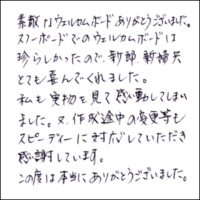 素敵なウェルカムボードありがとうございました。
スノーボードでのウェルカムボードは
珍らしかったので、新郎、新婦共
とても喜んでくれました。
私も実物を見て感動してしまい
ました。又、作成途中の変更等も
スピーディーに対応していただき
感謝しています。
この度は本当にありがとうございました。